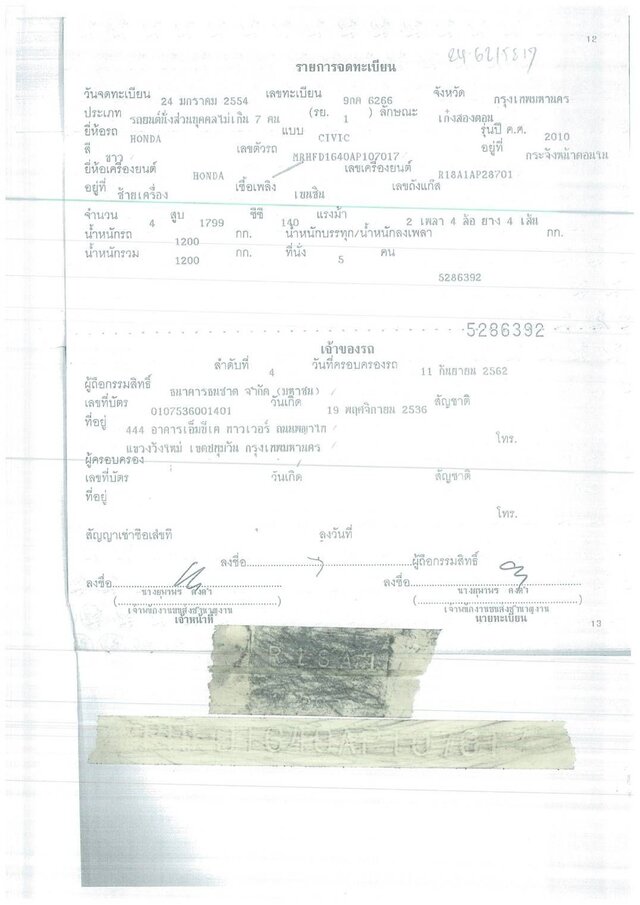 12
รายการจดทะเบียน
วันจดทะเบียน 24 มกราคม 2554 เลขทะเบียน 9กค 6266 จังหวัด กรุงเทพมหานคร
ประเภท รถยนต์นั่งส่วนบุคคลไม่เกิน 7 คน (รย. 1 ) ลักษณะ เก๋งสองตอน
ยี่ห้อรถ HONDA แบบ CIVIC รุ่นปี ค.ศ. 2010
สี ขาว เลขตัวรถ MRHFD1640AP107017 อยู่ที่ กระจังหน้าคอม
ยี่ห้อเครื่องยนต์ HONDA เลขเครื่องยนต์ R18A1AP28701
อยู่ที่ ซ้ายเครื่อง เชื้อเพลิง เบนซิน เลขถังแก๊ส
จำนวน 4 สูบ 1799 ซีซี 140 แรงม้า 2 เพลา 4 ล้อ ยาง 4 เส้น
น้ำหนักรถ 1200 กก. น้ำหนักบรรทุก/น้ำหนักลงเพลา กก.
น้ำหนักรวม 1200 กก. ที่นั่ง 5 คน
5286392
5286392
เจ้าของรถ
ลำดับที่ 4 วันที่ครอบครองรถ 11 กันยายน 2562
ผู้ถือกรรมสิทธิ์ ธนาคารธนชาต จำกัด (มหาชน)
เลขที่บัตร 0107536001401 วันเกิด 19 พฤศจิกายน 2536 สัญชาติ
ที่อยู่ 444 อาคารเอ็มบีเค ทาวเวอร์ ถนนพญาไท
โทร.
แขวงวังใหม่ เขตปทุมวัน กรุงเทพมหานคร
ผู้ครอบครอง
เลขที่บัตร วันเกิด สัญชาติ
ที่อยู่
โทร.
สัญญาเช่าซื้อเลขที่ ลงวันที่
ลงชื่อ ผู้ถือกรรมสิทธิ์
ลงชื่อ ลงชื่อ
เจ้าพนักงานขนส่งชำนาญงาน เจ้าพนักงานขนส่งชำนาญงาน
เจ้าหน้าที่ นายทะเบียน
13
R18A1